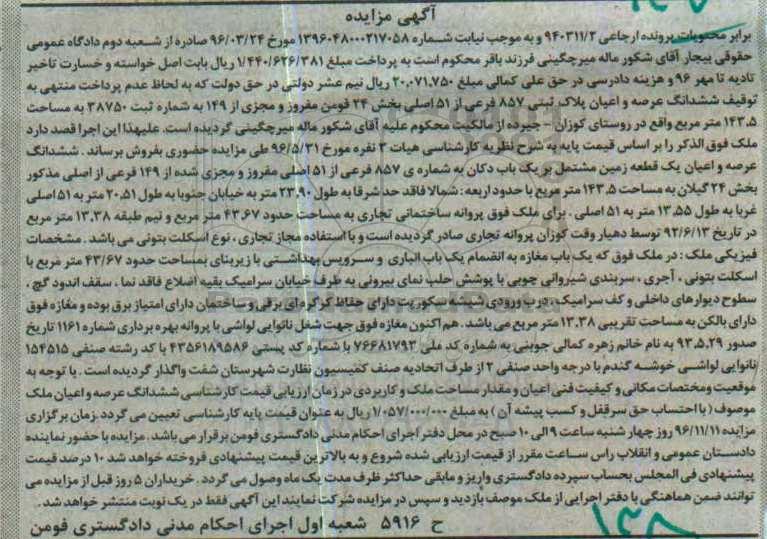 آگهی مزایده
برابر محتویات پرونده ارجاعی ۹۴۰۳۱۱/۲ و به موجب نیابت شماره ۱۳۹۶۰۴۸۰۰۰۲۱۷۰۵۸ مورخ ۹۶/۰۳/۲۴ صادره از شعبه دوم دادگاه عمومی
حقوقی بیجار آقای شکور ماله میرچگینی فرزند باقر محکوم است به پرداخت مبلغ ۱/۴۴۰/۶۲۶/۳۸۱ ریال بابت اصل خواسته و خسارت تاخیر
تادیه تا مهر ۹۶ و هزینه دادرسی در حق علی کمالی مبلغ ۲۰،۰۷۱،۷۵۰ ریال نیم عشر دولتی در حق دولت که به لحاظ عدم پرداخت منتهی به
توقیف ششدانگ عرصه و اعیان پلاک ثبتی ۸۵۷ فرعی از ۵۱ اصلی بخش ۲۴ فومن مفروز و مجزی از ۱۴۹ به شماره ثبت ۳۸۷۵۰ به مساحت
۱۴۳،۵ متر مربع واقع در روستای کوزان – جیرده از مالکیت محکوم علیه آقای شکور ماله میرچگینی گردیده است. علیهذا این اجرا قصد دارد
ملک فوق الذکر را بر اساس قیمت پایه به شرح نظریه کارشناسی هیات ۳ نفره مورخ ۹۶/۵/۳۱ طی مزایده حضوری بفروش برساند . ششدانگ
عرصه و اعیان یک قطعه زمین مشتمل بر یک باب دکان به شماره ی ۸۵۷ فرعی از ۵۱ اصلی مفروز و مجزی شده از ۱۴۹ فرعی از اصلی مذکور
بخش ۲۴ گیلان به مساحت ۱۴۳،۵ متر مربع با حدود اربعه : شمالا فاقد حد شرقا به طول ۲۳،۹۰ متر به خیابان جنوبا به طول ۲۰،۵۱ متر به ۵۱ اصلی
غربا به طول ۱۳،۵۵ متر به ۵۱ اصلی . برای ملک فوق پروانه ساختمانی تجاری به مساحت حدود ۴۳،۶۷ متر مربع و نیم طبقه ۱۳،۳۸ متر مربع
در تاریخ ۹۲/۶/۱۳ توسط دهیار وقت کوزان پروانه تجاری صادر گردیده است و با استفاده مجاز تجاری ، نوع اسکلت بتونی می باشد . مشخصات
فیزیکی ملک : در ملک فوق که یک باب مغازه به انضمام یک باب انباری و سرویس بهداشتی با زیربنای بمساحت حدود ۴۳/۶۷ متر مربع با
اسکلت بتونی ، آجری ، سربندی شیروانی چوبی با پوشش حلب نمای بیرونی به طرف خیابان سرامیک بقیه اضلاع فاقد نما ، سقف اندود گچ ،
سطوح دیوارهای داخلی و کف سرامیک ، درب ورودی شیشه سکوریت دارای حفاظ کرکره ای برقی و ساختمان دارای امتیاز برق بوده و مغازه فوق
دارای بالکن به مساحت تقریبی ۱۳،۳۸ متر مربع می باشد . هم اکنون مغازه فوق جهت شغل نانوایی لواشی با پروانه بهره برداری شماره ۱۱۶۱ تاریخ
صدور ۹۳،۵،۲۹ به نام خانم زهره کمالی جوبنی به شماره کد ملی ۷۶۶۸۱۷۹۳ با شماره کد پستی ۴۳۵۶۱۸۹۵۸۶ با کد رشته صنفی ۱۵۴۵۱۵
نانوایی لواشی خوشه گندم با درجه واحد صنفی ۲ از طرف اتحادیه صنف کمیسیون نظارت شهرستان شفت واگذار گردیده است . با توجه به
موقعیت ومختصات مکانی و کیفیت فنی اعیان و مقدار مساحت ملک و کاربردی در زمان ارزیابی قیمت کارشناسی ششدانگ عرصه و اعیان ملک
موصوف ( با احتساب حق سرقفل و کسب پیشه آن ) به مبلغ ۱/۰۵۷/۰۰۰/۰۰۰ ریال به عنوان قیمت پایه کارشناسی تعیین می گردد .زمان برگزاری
مزایده ۹۶/۱۱/۱۱ روز چهار شنبه ساعت ۹ الی ۱۰ صبح در محل دفتر اجرای احکام مدنی دادگستری فومن برقرار می باشد. مزایده با حضور نماینده
دادستان عمومی و انقلاب راس ساعت مقرر از قیمت ارزیابی شده شروع و به بالاترین قیمت پیشنهادی فروخته خواهد شد ۱۰ درصد قیمت
پیشنهادی فی المجلس بحساب سپرده دادگستری واریز و مابقی حداکثر ظرف مدت یک ماه وصول می گردد . خریداران ۵ روز قبل از مزایده می
توانند ضمن هماهنگی با دفتر اجرایی از ملک موصف بازدید و سپس در مزایده شرکت نمایند این آگهی فقط در یک نوبت منتشر خواهد شد .
ح ۵۹۱۶ شعبه اول اجرای احکام مدنی دادگستری فومن